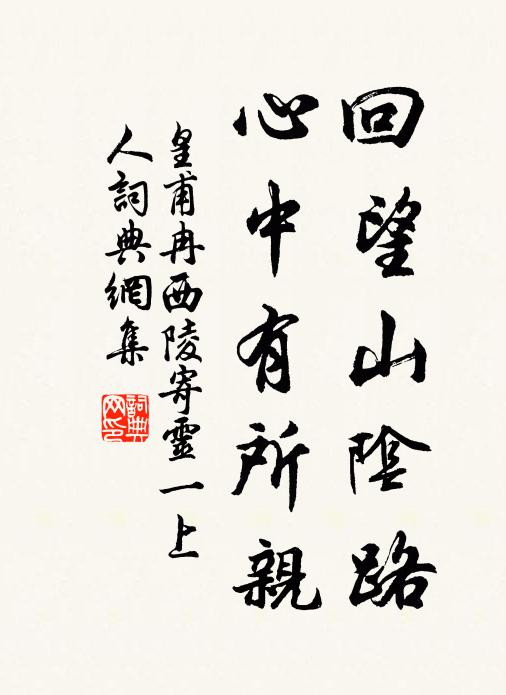 回望山陰路
心中有所親
皇甫冉西陵寄靈一上
人詞典網集
詞典
网印